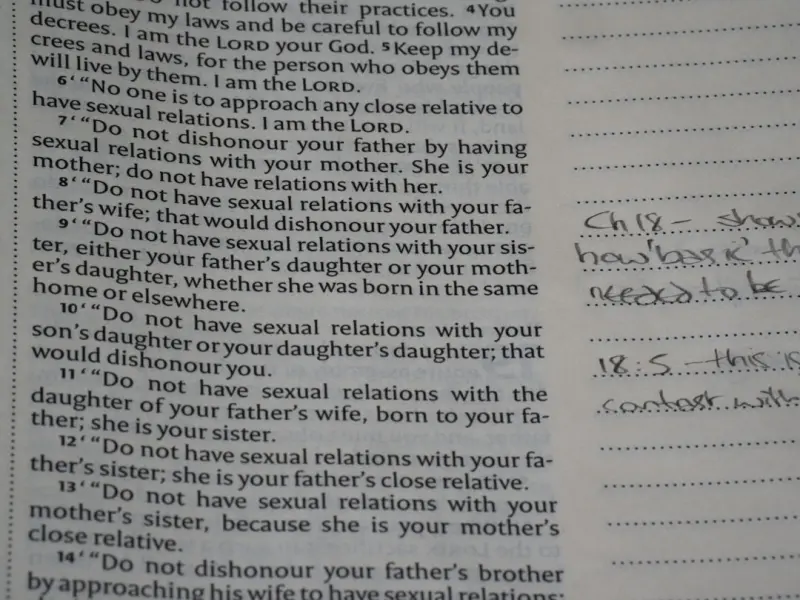 not follow their practices. 4 You
must obey my laws and be careful to follow my
decrees. I am the LORD your God. 5 Keep my de-
crees and laws, for the person who obeys them
will live by them. I am the LORD.
6 ‘ “No one is to approach any close relative to
have sexual relations. I am the LORD.
7 ‘ “Do not dishonour your father by having
sexual relations with your mother. She is your
mother; do not have relations with her.
8 ‘ “Do not have sexual relations with your fa-
ther’s wife; that would dishonour your father.
9 ‘ “Do not have sexual relations with your sis-
ter, either your father’s daughter or your moth-
er’s daughter, whether she was born in the same
home or elsewhere.
10 ‘ “Do not have sexual relations with your
son’s daughter or your daughter’s daughter; that
would dishonour you.
11 ‘ “Do not have sexual relations with the
daughter of your father’s wife, born to your fa-
ther; she is your sister.
12 ‘ “Do not have sexual relations with your fa-
ther’s sister; she is your father’s close relative.
13 ‘ “Do not have sexual relations with your
mother’s sister, because she is your mother’s
close relative.
14 ‘ “Do not dishonour your father’s brother
by approaching his wife to have sexual relations;
Ch 18 – show
how ‘basic’ th
needed to be
18:5 – this is
contast with